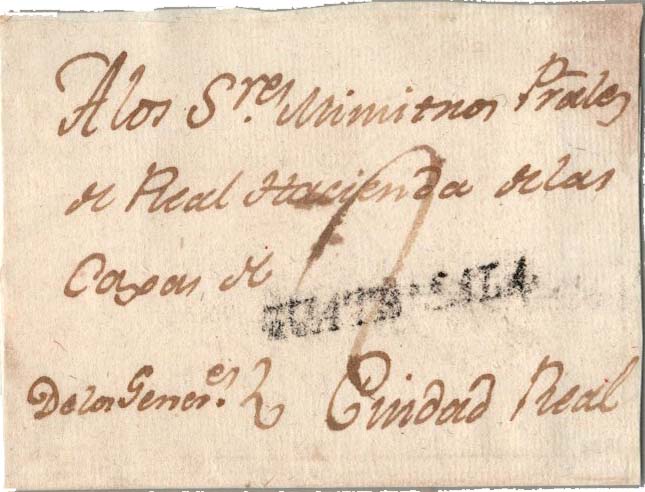 A los S.res Ministros Prâles
de Real Hacienda de las
Caxas de
GUATEMALA
De los Gener.s Ciudad Real